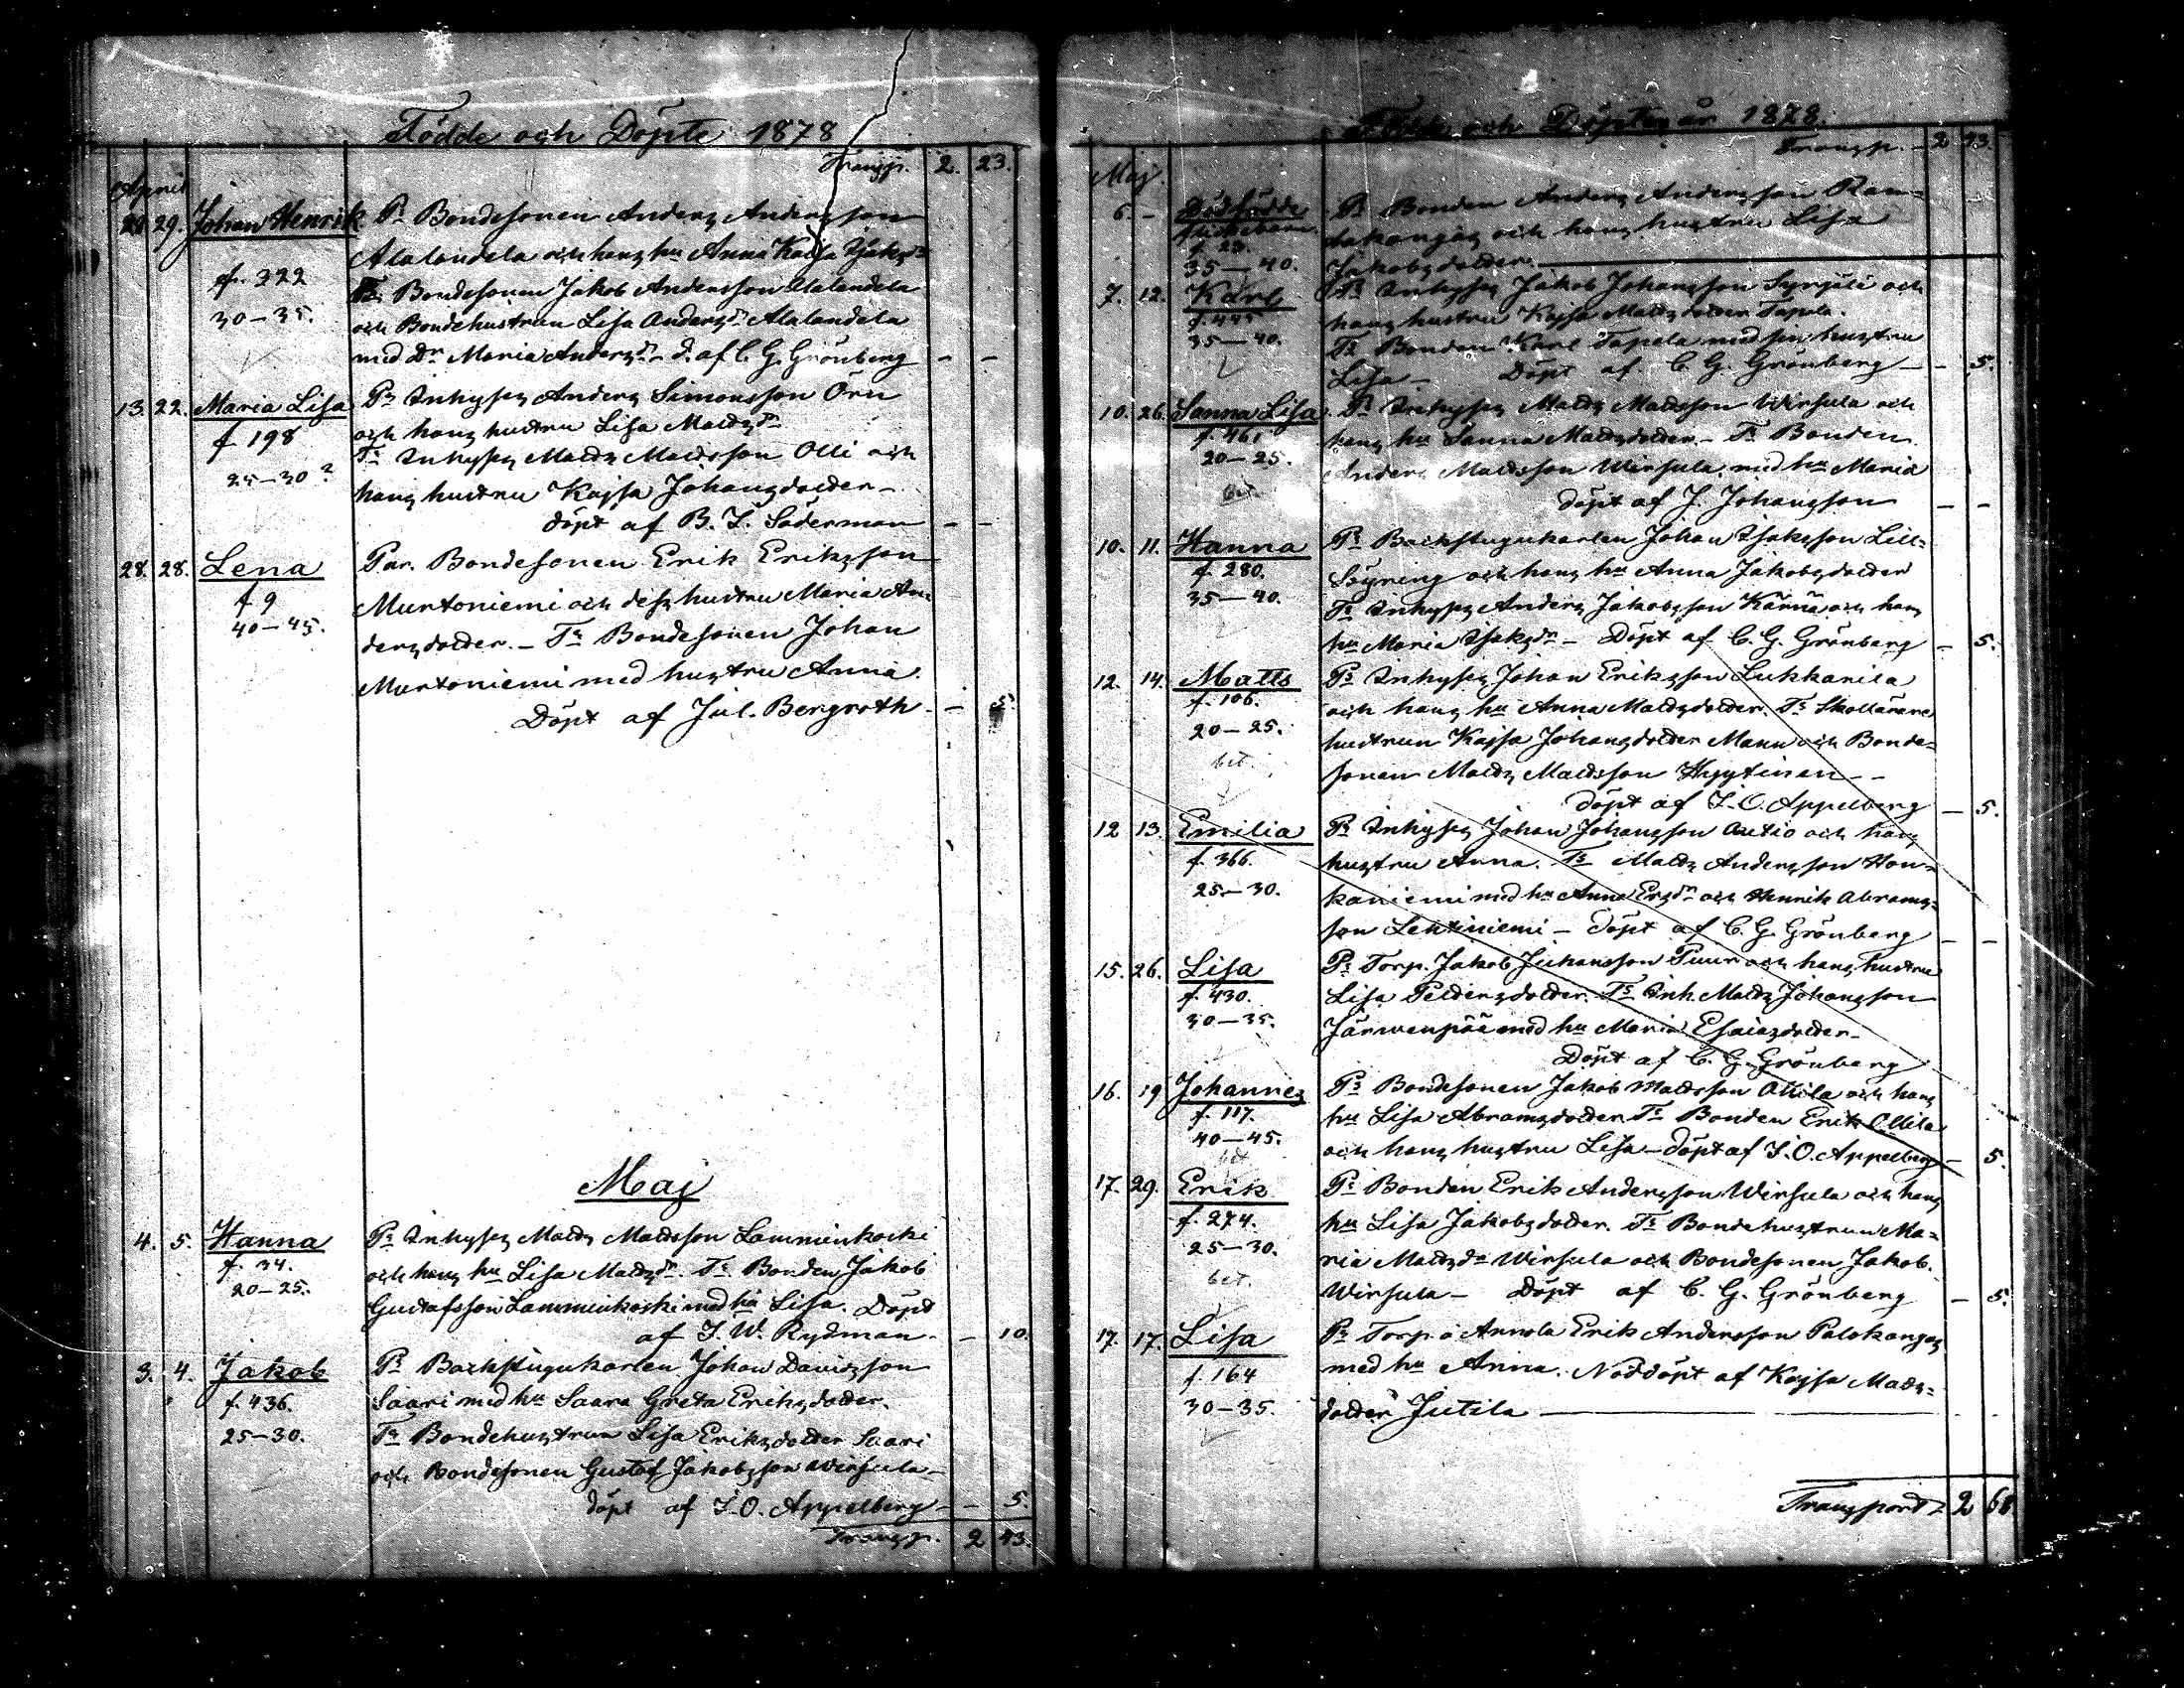 Födde och Döpte 1878
Transp. 2. 23.
April
29. Johan Henrik Ps Bondesonen Anders Andersson
Alalandela och hans hu Anna Kajsa
f. 322 Ts Bondesonen Jakob Andersson Alalandela
30–35. och Bondehustrun Lisa Andersdr Alalandela
med Dr Maria Andersdr – d. af C. G. Grönberg – –
13. 22. Maria Lisa Ps Inhyses Anders Simonsson Örn
f 198 och hans hustru Lisa Mattsdr
Ts Inhyses Matts Mattsson Olli och
25–30? hans hustru Kajsa Johansdotter –
döpt af B. I. Söderman – –
28. 28. Lena Par. Bondesonen Erik Eriksson
f 9 Murtoniemi och dess hustru Maria An-
40–45. dersdotter. – Ts Bondesonen Johan
Murtoniemi med hustru Anna.
Döpt af Jul. Bergroth – – 5.
Maj
4. 5. Hanna Ps Inhyses Matts Mattsson Lammienkoski
f. 34. och hans hu Lisa Mattsdr. Ts Bonden Jakob
20–25. Gustafsson Lammienkoski med hu Lisa. Döpt
af I. W. Rydman. – 10.
3. 4. Jakob Ps Backstugukarlen Johan Davidsson
f. 436. Saari med hu Saara Greta Eriksdotter.
25–30. Ts Bondehustrun Lisa Eriksdotter Saari
och Bondesonen Gustaf Jakobsson Wirsula –
döpt af I. O. Appelberg – – 5.
Transp. 2 43.
Födde och Döpte år 1878.
Transp. – 2 43.
Maj.
6. – Dödfödde Ps Bonden Anders Andersson Ran-
flickebarn. takangas och hans hustru Lisa
f. 23.
35–40. Jakobsdotter.
7. 12. Karl Ps Inhyses Jakob Johansson Syrjälä och
hans hustru Kajsa Mattsdotter Tapola.
35–40. Ts Bonden Karl Tapola med sin hustru
Lisa – Döpt af C. G. Grönberg – – 5.
10. 26. Sanna Lisa. Ps Inhyses Matts Mattsson Wirsula och
f. 461 hans hu Sanna Mattsdotter – Ts Bonden
20–25. Anders Mattsson Wirsula med hu Maria
bet. döpt af J. Johansson – –
10. 11. Hanna Ps Backstugukarlen Johan Isaksson Lill-
f. 280. Söyring och hans hu Anna Jakobsdotter
35–40. Ts Inhyses Anders Jakobsson Kärnä och hans
hu Maria Isaksdr – Döpt af C. G. Grönberg – 5.
12. 14. Matts Ps Inhyses Johan Eriksson Lukkarila
f. 106. och hans hu Anna Mattsdotter. Ts Skollärare
20–25. hustrun Kajsa Johansdotter Mann och Bonde-
bet. sonen Matts Mattsson Hyytinen – –
döpt af I. O. Appelberg – 5.
12 13. Emilia Ps Inhyses Johan Johansson Autio och hans
f. 366. hustru Anna. Ts Matts Andersson Hon-
25–30. kaniemi med hu Anna Ersdr och Henrik Abrams-
son Lehtiniemi – döpt af C. G. Grönberg – –
15. 26. Lisa Ps Torp. Jakob Juhansson Puur och hans hustru
f. 430. Lisa Peldersdotter. Ts Inh. Matts Johansson
30–35. Järwenpää med hu Maria Esaiasdotter –
Döpt af C. G. Grönberg
16. 19 Johannes Ps Bondesonen Jakob Mattsson Ollila och hans
f. 117. hu Lisa Abramsdotter Ts Bonden Erik Ollila
40–45. och hans hustru Lisa – döpt af I. O. Appelberg – 5.
bet
17. 29. Erik Ps Bonden Erik Andersson Wirsula och hans
f. 274. hu Lisa Jakobsdotter. Ts Bondehustrun Ma-
25–30. ria Mattsdr Wirsula och Bondesonen Jakob.
bet. Wirsula – Döpt af C. G. Grönberg – 5.
17. 17. Lisa Ps Torp. å Annola Erik Andersson Palokangas
f. 164 med hu Anna. Nöddöpt af Kajsa Matts-
30–35. dotter Jutila
Transport 2 68